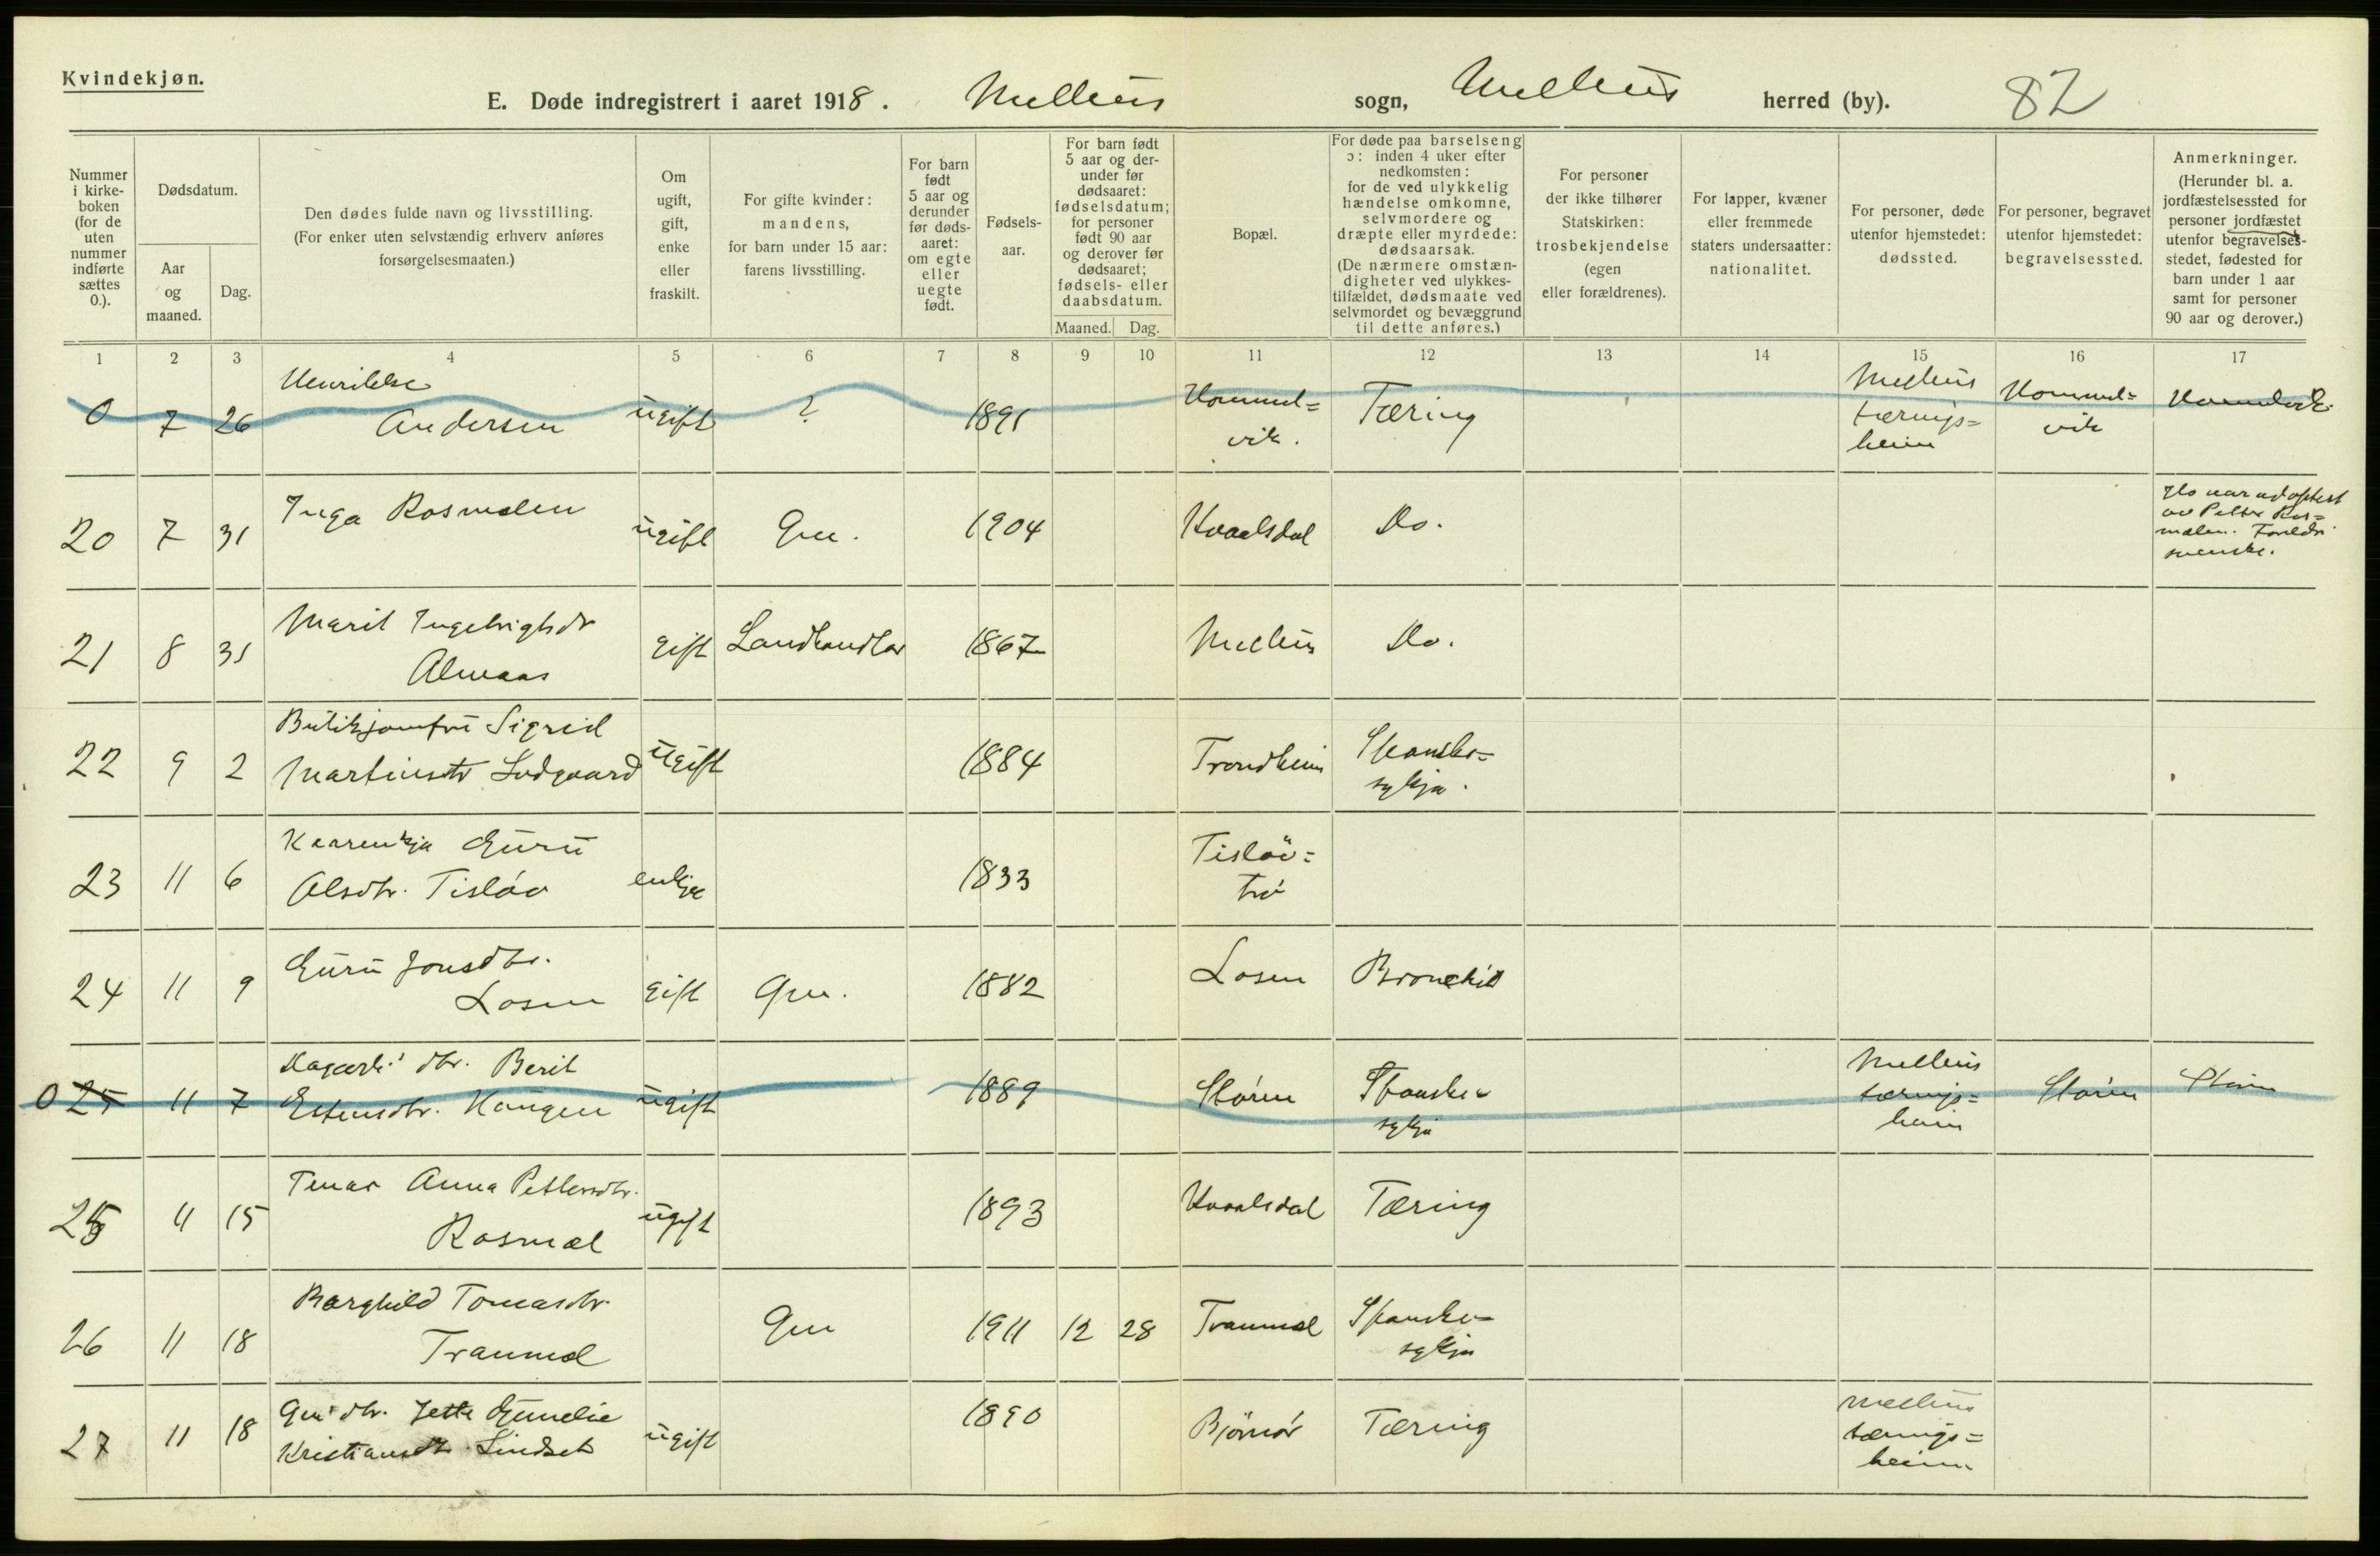 Kvindekjøn.
E. Døde indregistrert i aaret 1918. Melhus sogn, Melhus herred (by). 82
Nummer i kirkeboken (for de uten nummer indførte sættes 0.).
Dødsdatum.
Aar og maaned.
Dag.
Den dødes fulde navn og livsstilling.
(For enker uten selvstændig erhverv anføres
forsørgelsesmaaten.)
Om ugift, gift, enke eller fraskilt.
For gifte kvinder: mandens, for barn under 15 aar: farens livsstilling.
For barn født 5 aar og derunder før dødsaaret: om egte eller uegte født.
Fødselsaar.
For barn født 5 aar og derunder før dødsaaret: fødselsdatum; for personer født 90 aar og derover før dødsaaret; fødsels- eller daabsdatum.
Maaned. Dag.
Bopæl.
For døde paa barselseng ɔ: inden 4 uker efter nedkomsten: for de ved ulykkelig hændelse omkomne, selvmordere og dræpte eller myrdede: dødsaarsak.
(De nærmere omstændigheter ved ulykkestilfældet, dødsmaate ved selvmordet og bevæggrund til dette anføres.)
For personer der ikke tilhører Statskirken: trosbekjendelse (egen eller forældrenes).
For lapper, kvæner eller fremmede staters undersaatter: nationalitet.
For personer, døde utenfor hjemstedet: dødssted.
For personer, begravet utenfor hjemstedet: begravelsessted.
Anmerkninger.
(Herunder bl. a. jordfæstelsessted for personer jordfæstet utenfor begravelsesstedet, fødested for barn under 1 aar samt for personer 90 aar og derover.)
1 2 3 4 5 6 7 8 9 10 11 12 13 14 15 16 17
0 7 26 Andersen ugift ? 1891 Hommelvik. Tæring Melhus tæringsheim Hommelvik
20 7 31 Inga Rosmælen ugift Gm. 1904 Kvaalsdal Do. Ho var adoptert av Petter Rosmælen. Foreldr svenske.
21 8 31 Marit Ingebrigtsdr Almaas gift Landhandlar 1867 Melhus Do.
22 9 2 Butikjomfru Sigrid Martinsdtr Lodgaard ugift 1884 Trondheim Spanskesykja.
23 11 6 Kaarenkja Guru Olsdtr. Tisløv enkja 1833 Tisløvtrø
24 11 9 Guru Jonsdtr. Losen gift Gm. 1882 Losen Bronchit
0 25 11 7 dtr. Berit Estensdtr. Haugen ugift 1889 Støren Spanskesykja Melhus tæringsheim Støren Støren
25 11 15 Tenar Anna Pettersdtr. Rosmæl ugift 1893 Kvaalsdal Tæring
26 11 18 Borghild Tomasdtr. Tranmæl Gm 1911 12 28 Tranmæl Spanskesykja
27 11 18 Gm. dtr. Jette Kristiansdtr. Lindset ugift 1890 Bjørnør Tæring Melhus tæringsheim